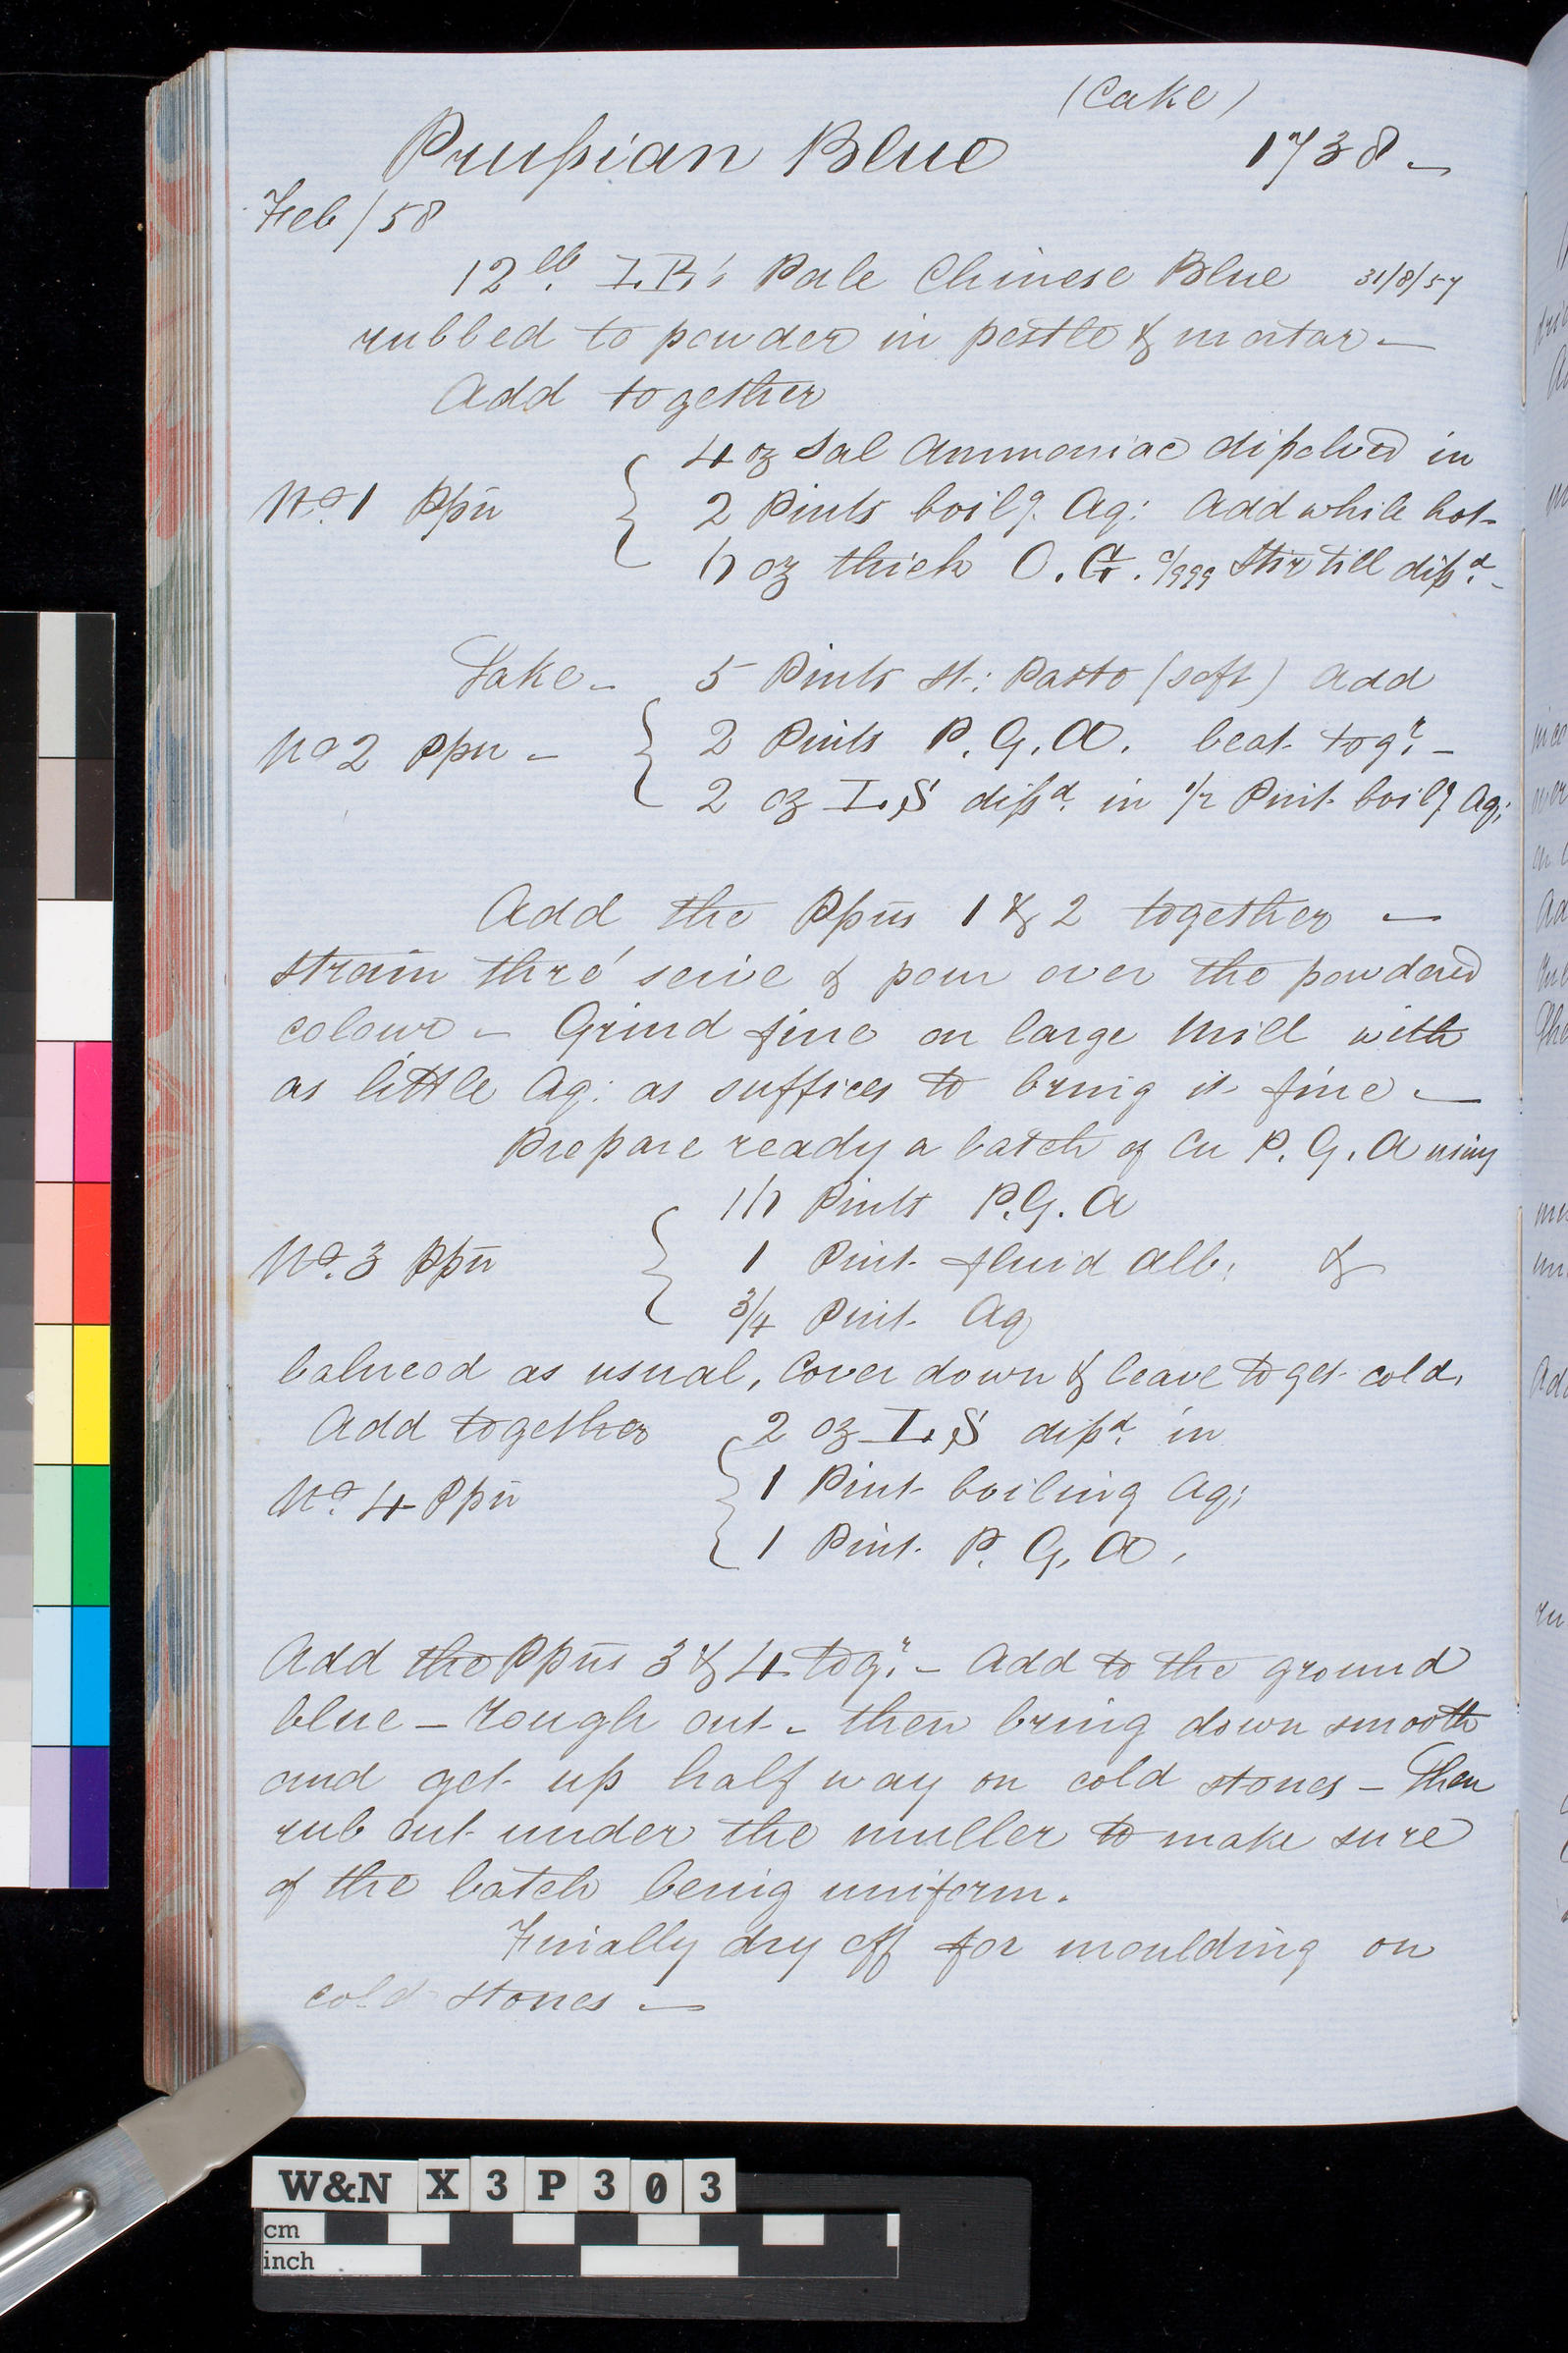 (Cake)
Prußian Blue 1738 —
Feb / 58
12 lb. I.B's Pale Chinese Blue 31/8/57
rubbed to powder in pestle & mortar —
Add together
4 oz Sal Ammoniac dißolved in
No. 1 Ppn { 2 Pints boilg. Aq: Add while hot
oz thick O.G. Stir till dißd. -
Take - 5 Pints St: Paste (soft) add
No 2 Ppn - { 2 Pints P.G.A. beat togr. -
2 oz I.S dißd. in 1/2 Pint boilg Aq:
Add the Ppns 1 & 2 together —
strain thro' seive & pour over the powdered
colour - Grind fine on large Mill with
as little Aq: as suffices to bring it fine —
Prepare ready a batch of Cn P.G.A using
Pints P.G.A
No. 3 Ppn { 1 Pint fluid alb: &
3/4 Pint Aq
balneod as usual, Cover down & leave to get cold.
Add together 2 oz I.S dißd. in
No. 4 Ppn { 1 Pint boiling Aq:
1 Pint P.G.A.
Add the Ppns 3 & 4 togr. - Add to the ground
blue - Rough out - then bring down smooth
and get up half way on cold stones - Then
rub out under the muller to make sure
of the batch being uniform.
Finally dry off for moulding on
cold stones —
W&N X3P303
cm
inch